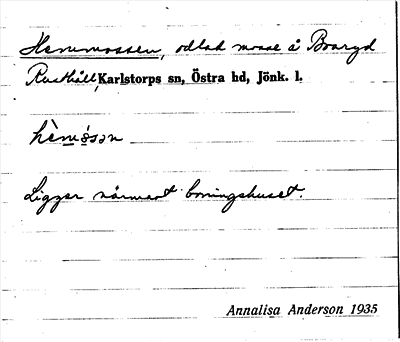 Hemmossen, odlad mosse å Boaryd
Rusthåll, Karlstorps sn, Östra hd, Jönk. l.
hèmǻsən
Ligger närmast boningshuset.
Annalisa Anderson 1935